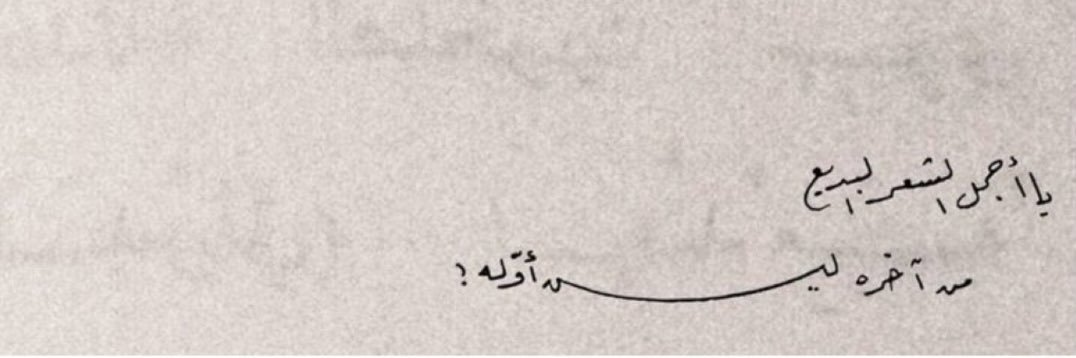 يا أجمل الشعر البديع
من آخره ليـــــن أوّله ؟